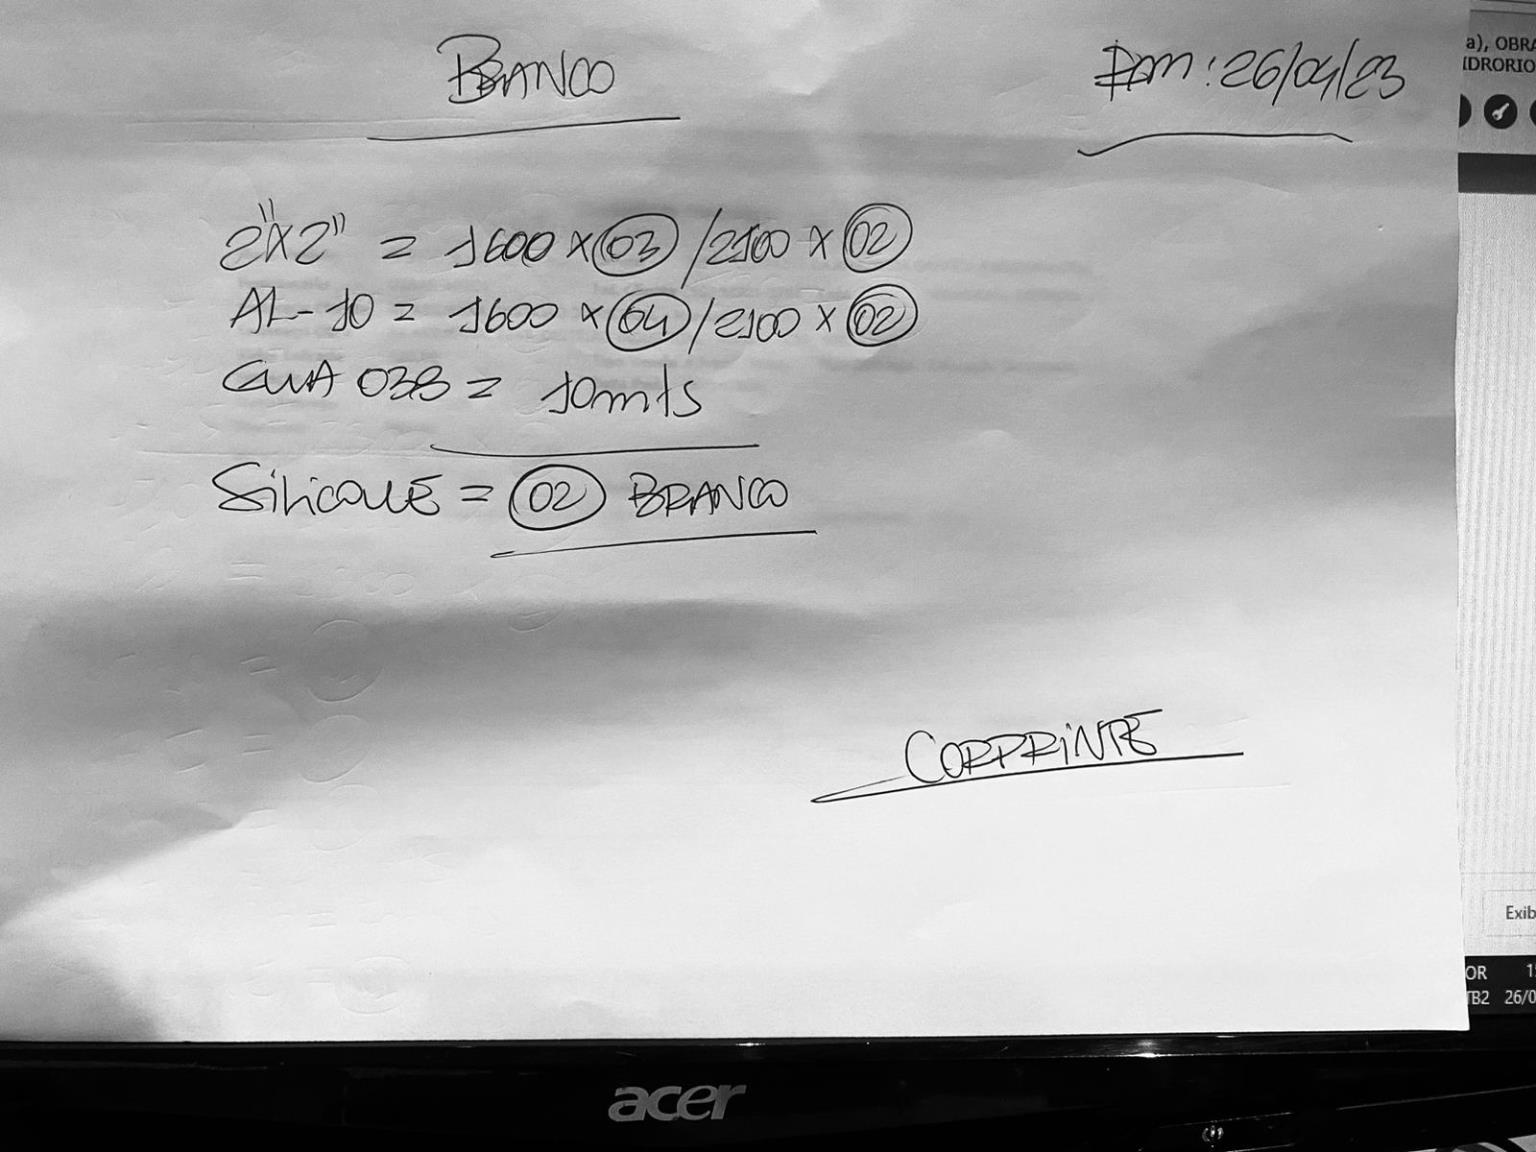 BRANCO
Dom: 26/04/23
2"X2" = 1600 x 03 / 2100 x 02
AL-10 = 1600 x 04 / 2100 x 02
038 = 10mts
SiliCONE = 02 BRANCO
CORPRiNTE
a), OBRA
IDRORIO
Exib
OR
TB2 26/0
acer